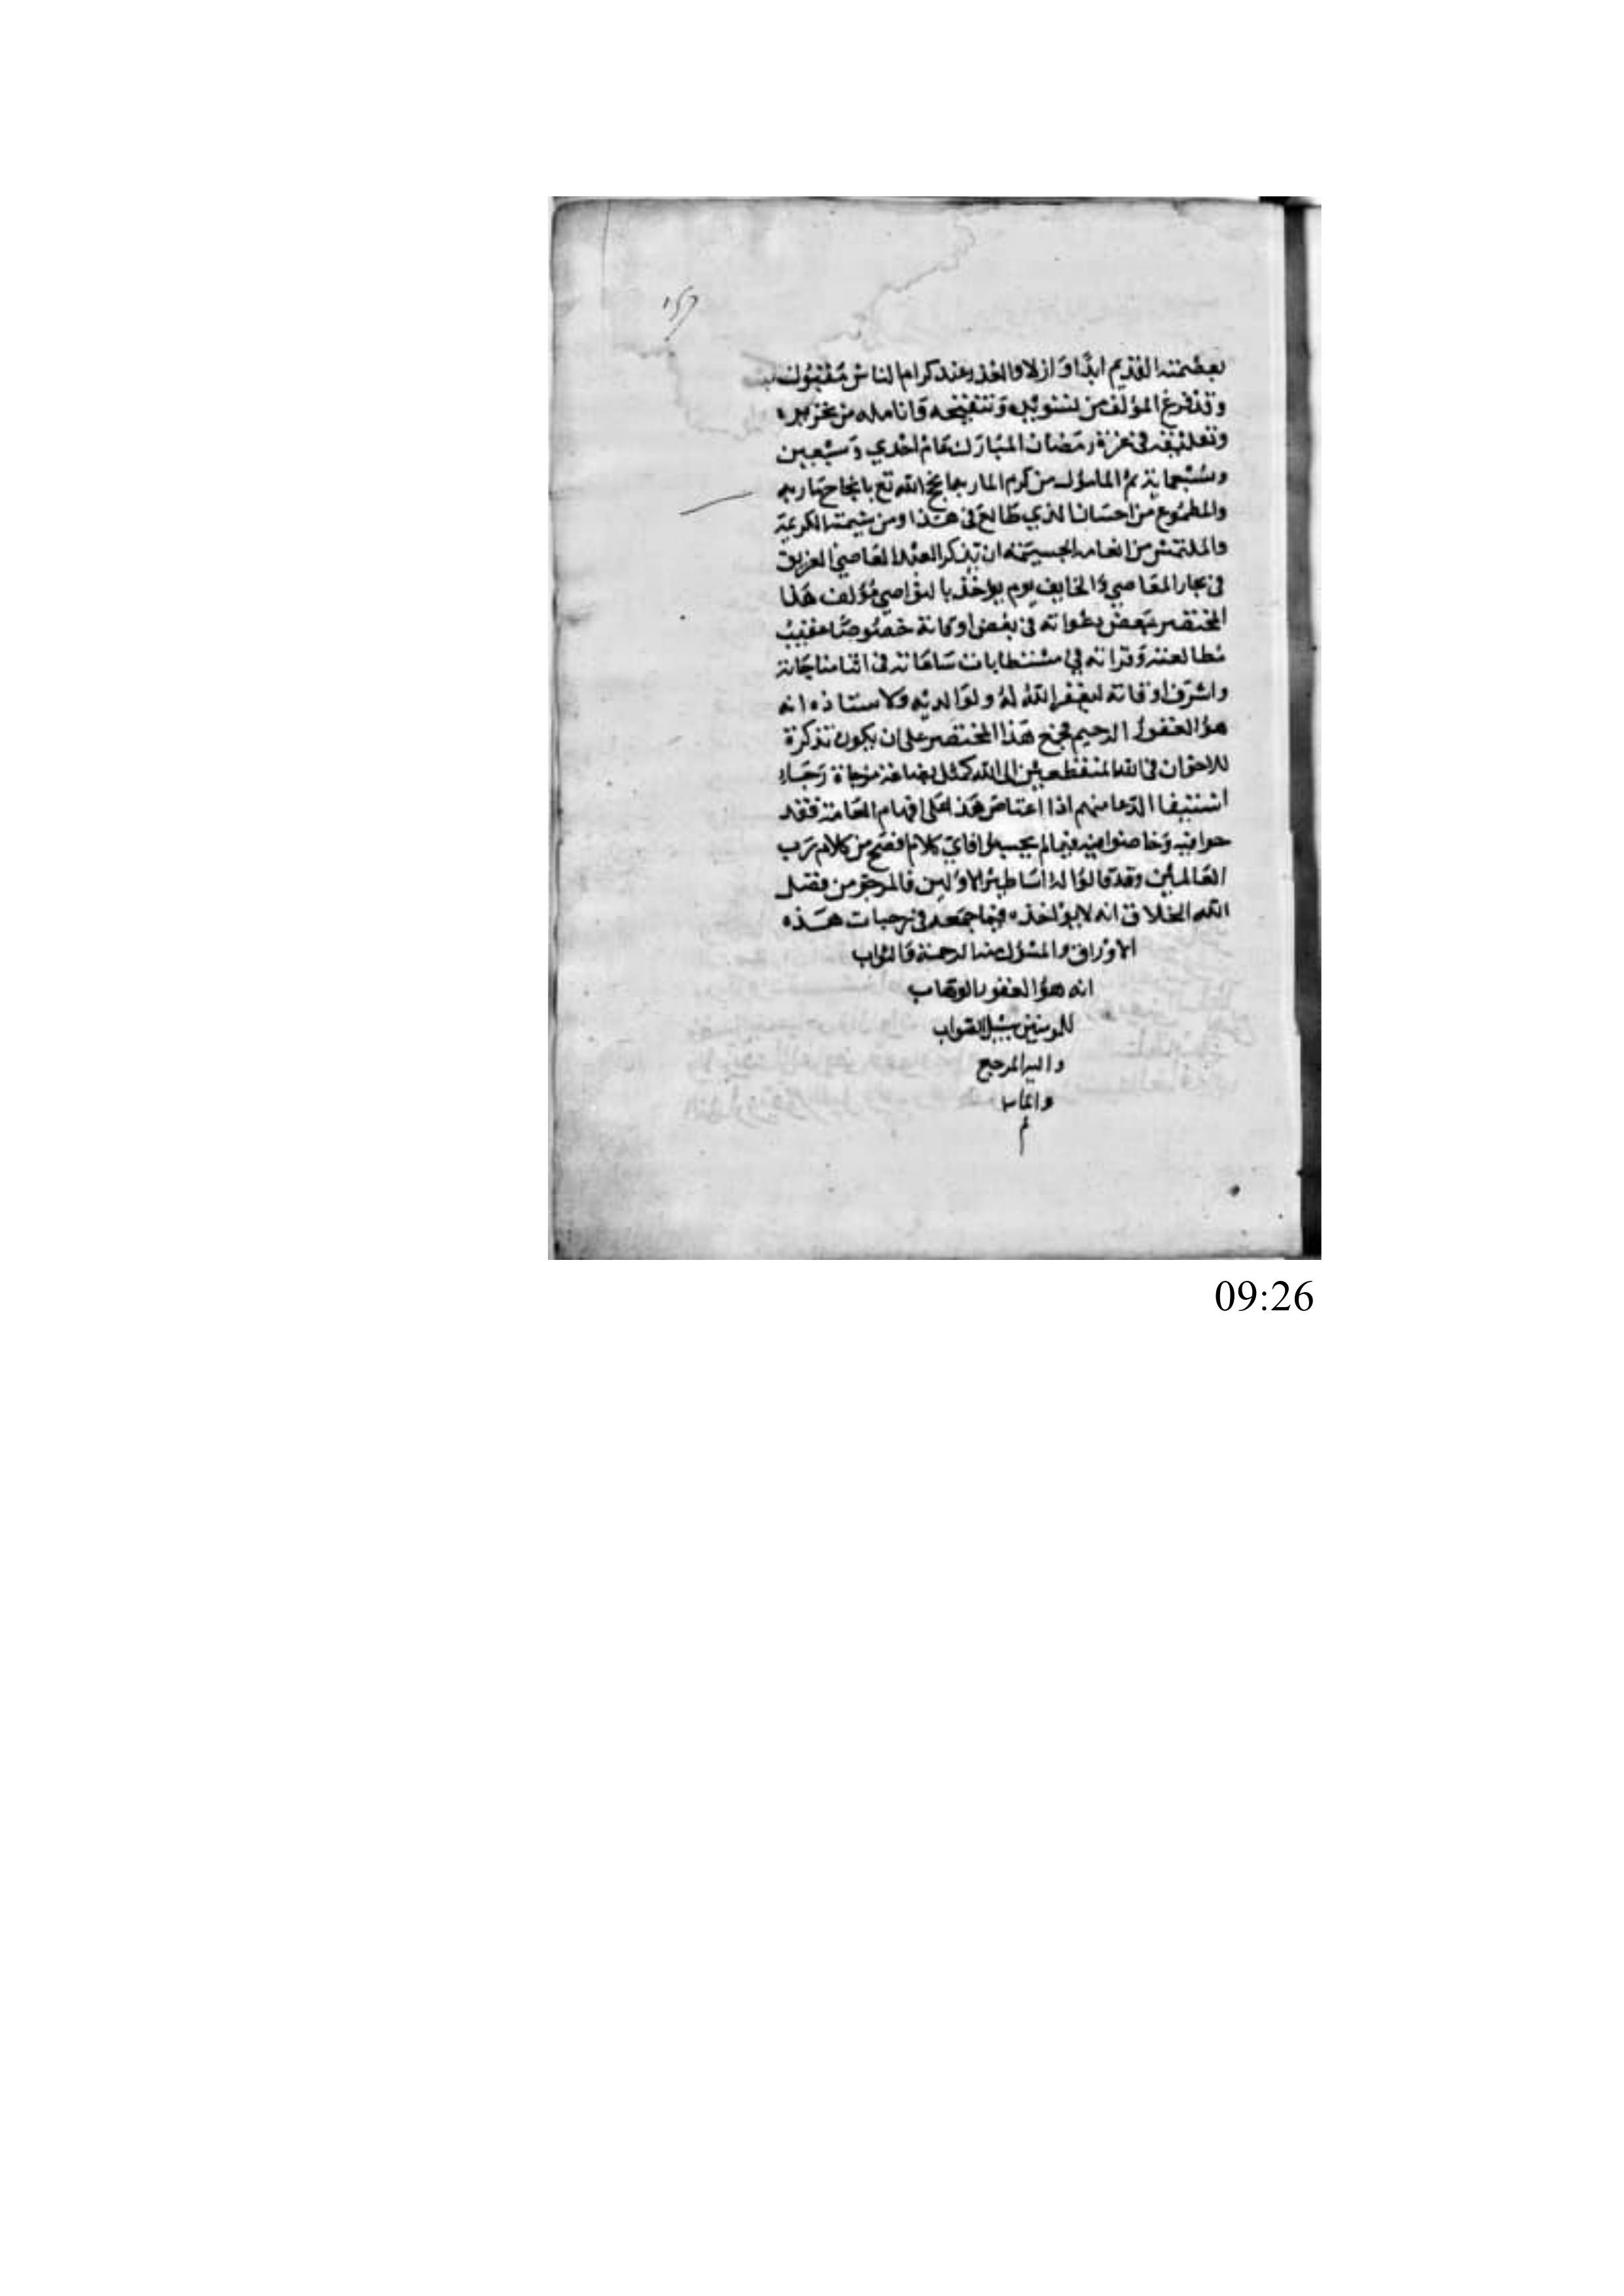 بعصمته القديم ابدا وازلا والعذر عند كرام الناس مقبول
وقد فرغ المؤلف من تسويده وتنقيحه وانامله من تحريره
وتعليقه في غرة رمضان المبارك عام احدي وسبعين
وسبعماية ثم المامول من كرم المار بها نجح الله تع بانجاح ماربه
والمطموع من احسان الذي طالع في هذا ومن شيمته الكريمة
والملتمس من انعامه الجسيمة ان يذكر العبد العاصي الغريق
في بحار المعاصي والخايف يوم يواخذ بالنواصي مؤلف هذا
المختصر ببعض دعواته في بعض اوقاته خصوصا عقيب
مطالعته وقراته في مستطابات ساعاته في اثنا مناجاته
واشرف اوقاته ليغفر الله له ولوالديه ولاستاذه انه
هو الغفور الرحيم فجمع هذا المختصر علي ان يكون تذكرة
للاخوان في الله المنقطعين الى الله كمثل بضاعة مزجاة رجاء
استبقا الدعا منهم اذا اعتاص هذا على افهام العامة فقد
خوافيه وخاضوا فيه فيما لم يحسبوا فاي كلام افصح من كلام رب
العالمين وقد قالوا له اساطير الاولين فالمرجو من فضل
الله الخلاق انه لا يواخذه فيما جمعه في رحبات هذه
الاوراق والمسؤل منه الرحمة والثواب
انه هو الغفور الوهاب
للمومنين سبيل الصواب
واليه المرجع
والماب
م
١٥٦
09:26